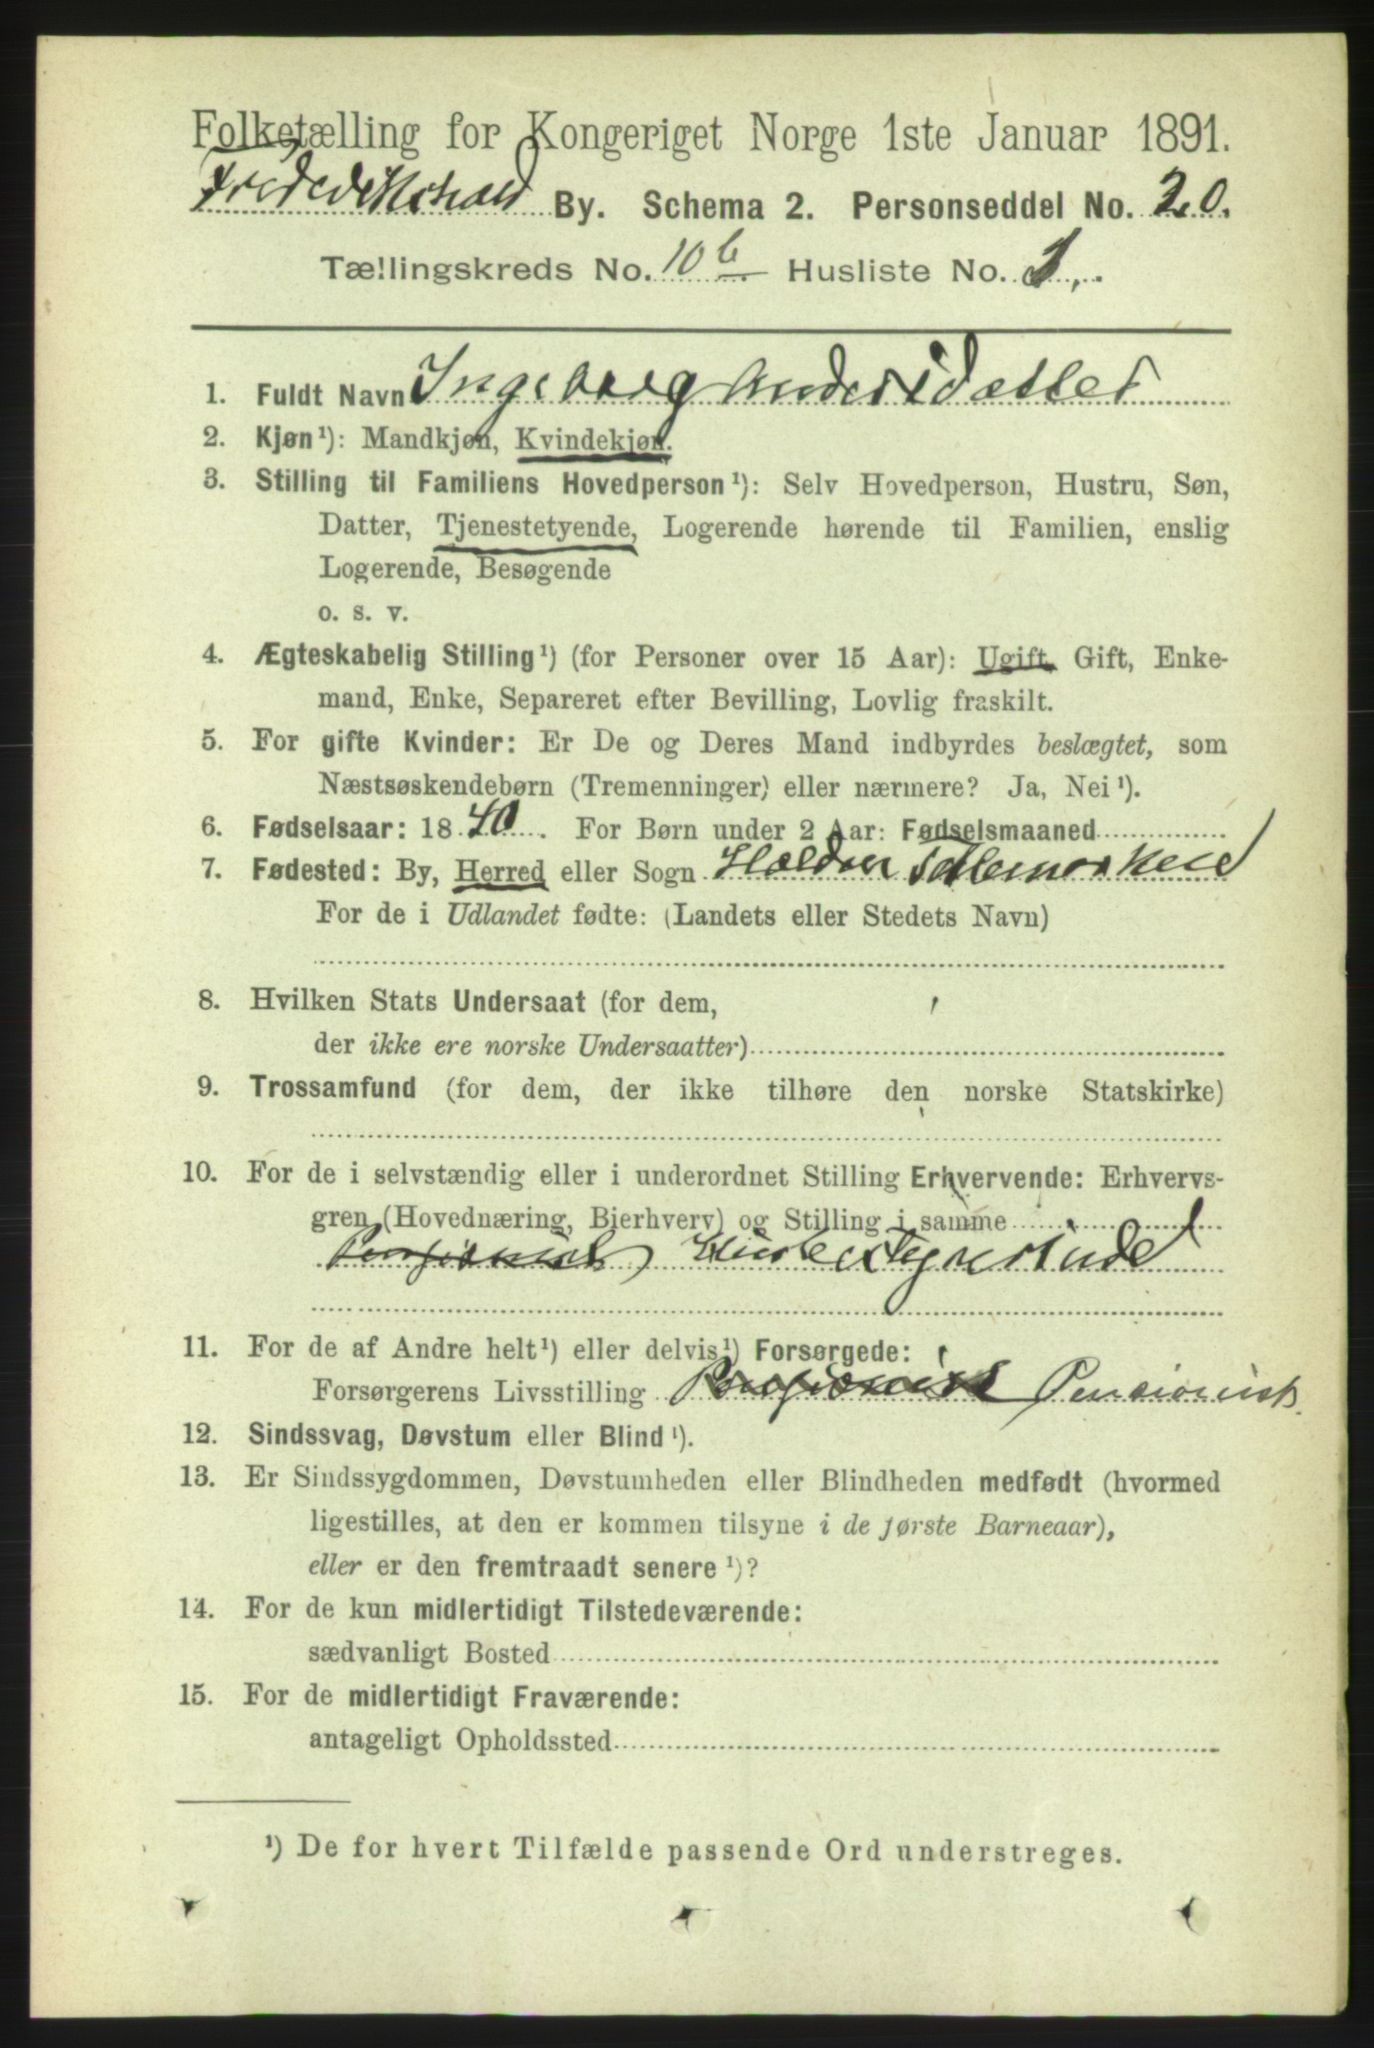 Folketælling for Kongeriget Norge 1ste Januar 1891.
Frederikshald By. Schema 2. Personseddel No. 20.
Tællingskreds No. 10 b Husliste No. 1.
1. Fuldt Navn Ingeborg Andersdatter
2. Kjøn ¹): Mandkjøn, Kvindekjøn.
3. Stilling til Familiens Hovedperson ¹): Selv Hovedperson, Hustru, Søn,
Datter, Tjenestetyende, Logerende hørende til Familien, enslig
Logerende, Besøgende
o. s. v.
4. Ægteskabelig Stilling ¹) (for Personer over 15 Aar): Ugift, Gift, Enke-
mand, Enke, Separeret efter Bevilling, Lovlig fraskilt.
5. For gifte Kvinder: Er De og Deres Mand indbyrdes beslægtet, som
Næstsøskendebørn (Tremenninger) eller nærmere? Ja, Nei ¹).
6. Fødselsaar: 1840. For Børn under 2 Aar: Fødselsmaaned
7. Fødested: By, Herred eller Sogn Holden Telemarken
For de i Udlandet fødte: (Landets eller Stedets Navn)
8. Hvilken Stats Undersaat (for dem,
der ikke ere norske Undersaatter)
9. Trossamfund (for dem, der ikke tilhøre den norske Statskirke)
10. For de i selvstændig eller i underordnet Stilling Erhvervende: Erhvervs-
gren (Hovednæring, Bierhverv) og Stilling i samme
Pensionist
11. For de af Andre helt ¹) eller delvis ¹) Forsørgede:
Forsørgerens Livsstilling Pensionist Pensionist
12. Sindssvag, Døvstum eller Blind ¹).
13. Er Sindssygdommen, Døvstumheden eller Blindheden medfødt (hvormed
ligestilles, at den er kommen tilsyne i de første Barneaar),
eller er den fremtraadt senere ¹)?
14. For de kun midlertidigt Tilstedeværende:
sædvanligt Bosted
15. For de midlertidigt Fraværende:
antageligt Opholdssted
¹) De for hvert Tilfælde passende Ord understreges.